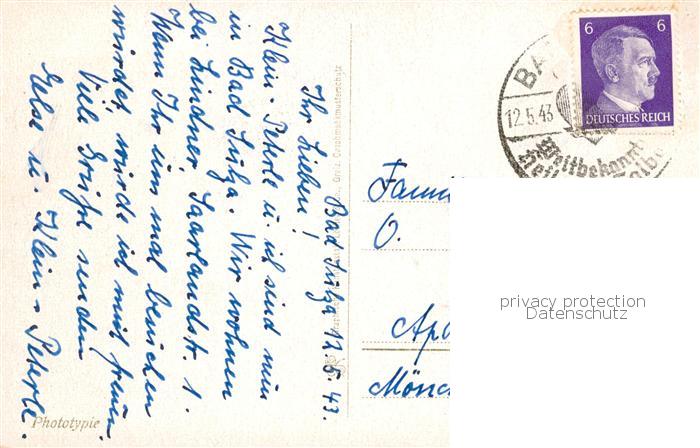 Bad Sulza 12.5.43.
Ihr Lieben!
Klein-Peterle u. ich sind nun
in Bad Sulza. Wir wohnen
bei Lindner, Saarlandstr. 1.
Wenn Ihr uns mal besuchen
würdet würde ich mich freun.
Viele Grüße senden
Else u. Klein-Peterle.
Phototypie
6 6
DEUTSCHES REICH
BA
12.5.43
Weltbekannt
O.
Apo
Mönc
privacy protection
Datenschutz